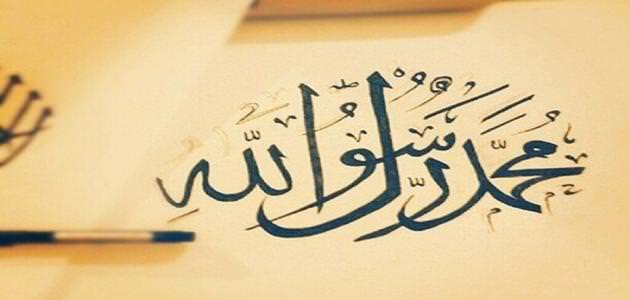 مُحَمَّدٌ رَّسُولُ اللهِ